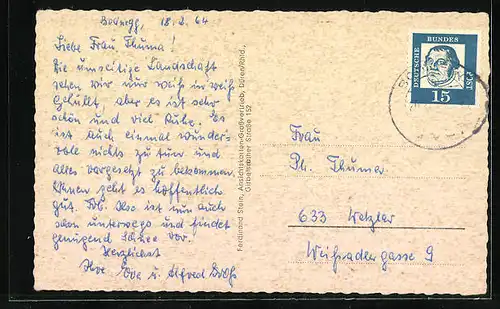 Bodnegg, 18.2.64
Liebe Frau Thuma!
Die umseitige Landschaft
sehen wir nur weiß in weiß
gehüllt, aber es ist sehr
schön und viel Ruhe. Es
ist auch einmal wunder-
voll nichts zu tun und
alles vorgesetzt zu bekommen.
Ihnen geht es hoffentlich
gut. Also ist nun auch
schon unterwegs und findet
genügend Schnee vor.
Herzlichst
Ihre u. Alfred
Ferdinand Stein, Ansichtskarten-Großvertrieb, Düren/Rhld.,
Gürzenicher Straße 152
DEUTSCHE BUNDES POST
15
Frau
Ph. Thuma
633 Wetzlar
Weißadlergasse 9